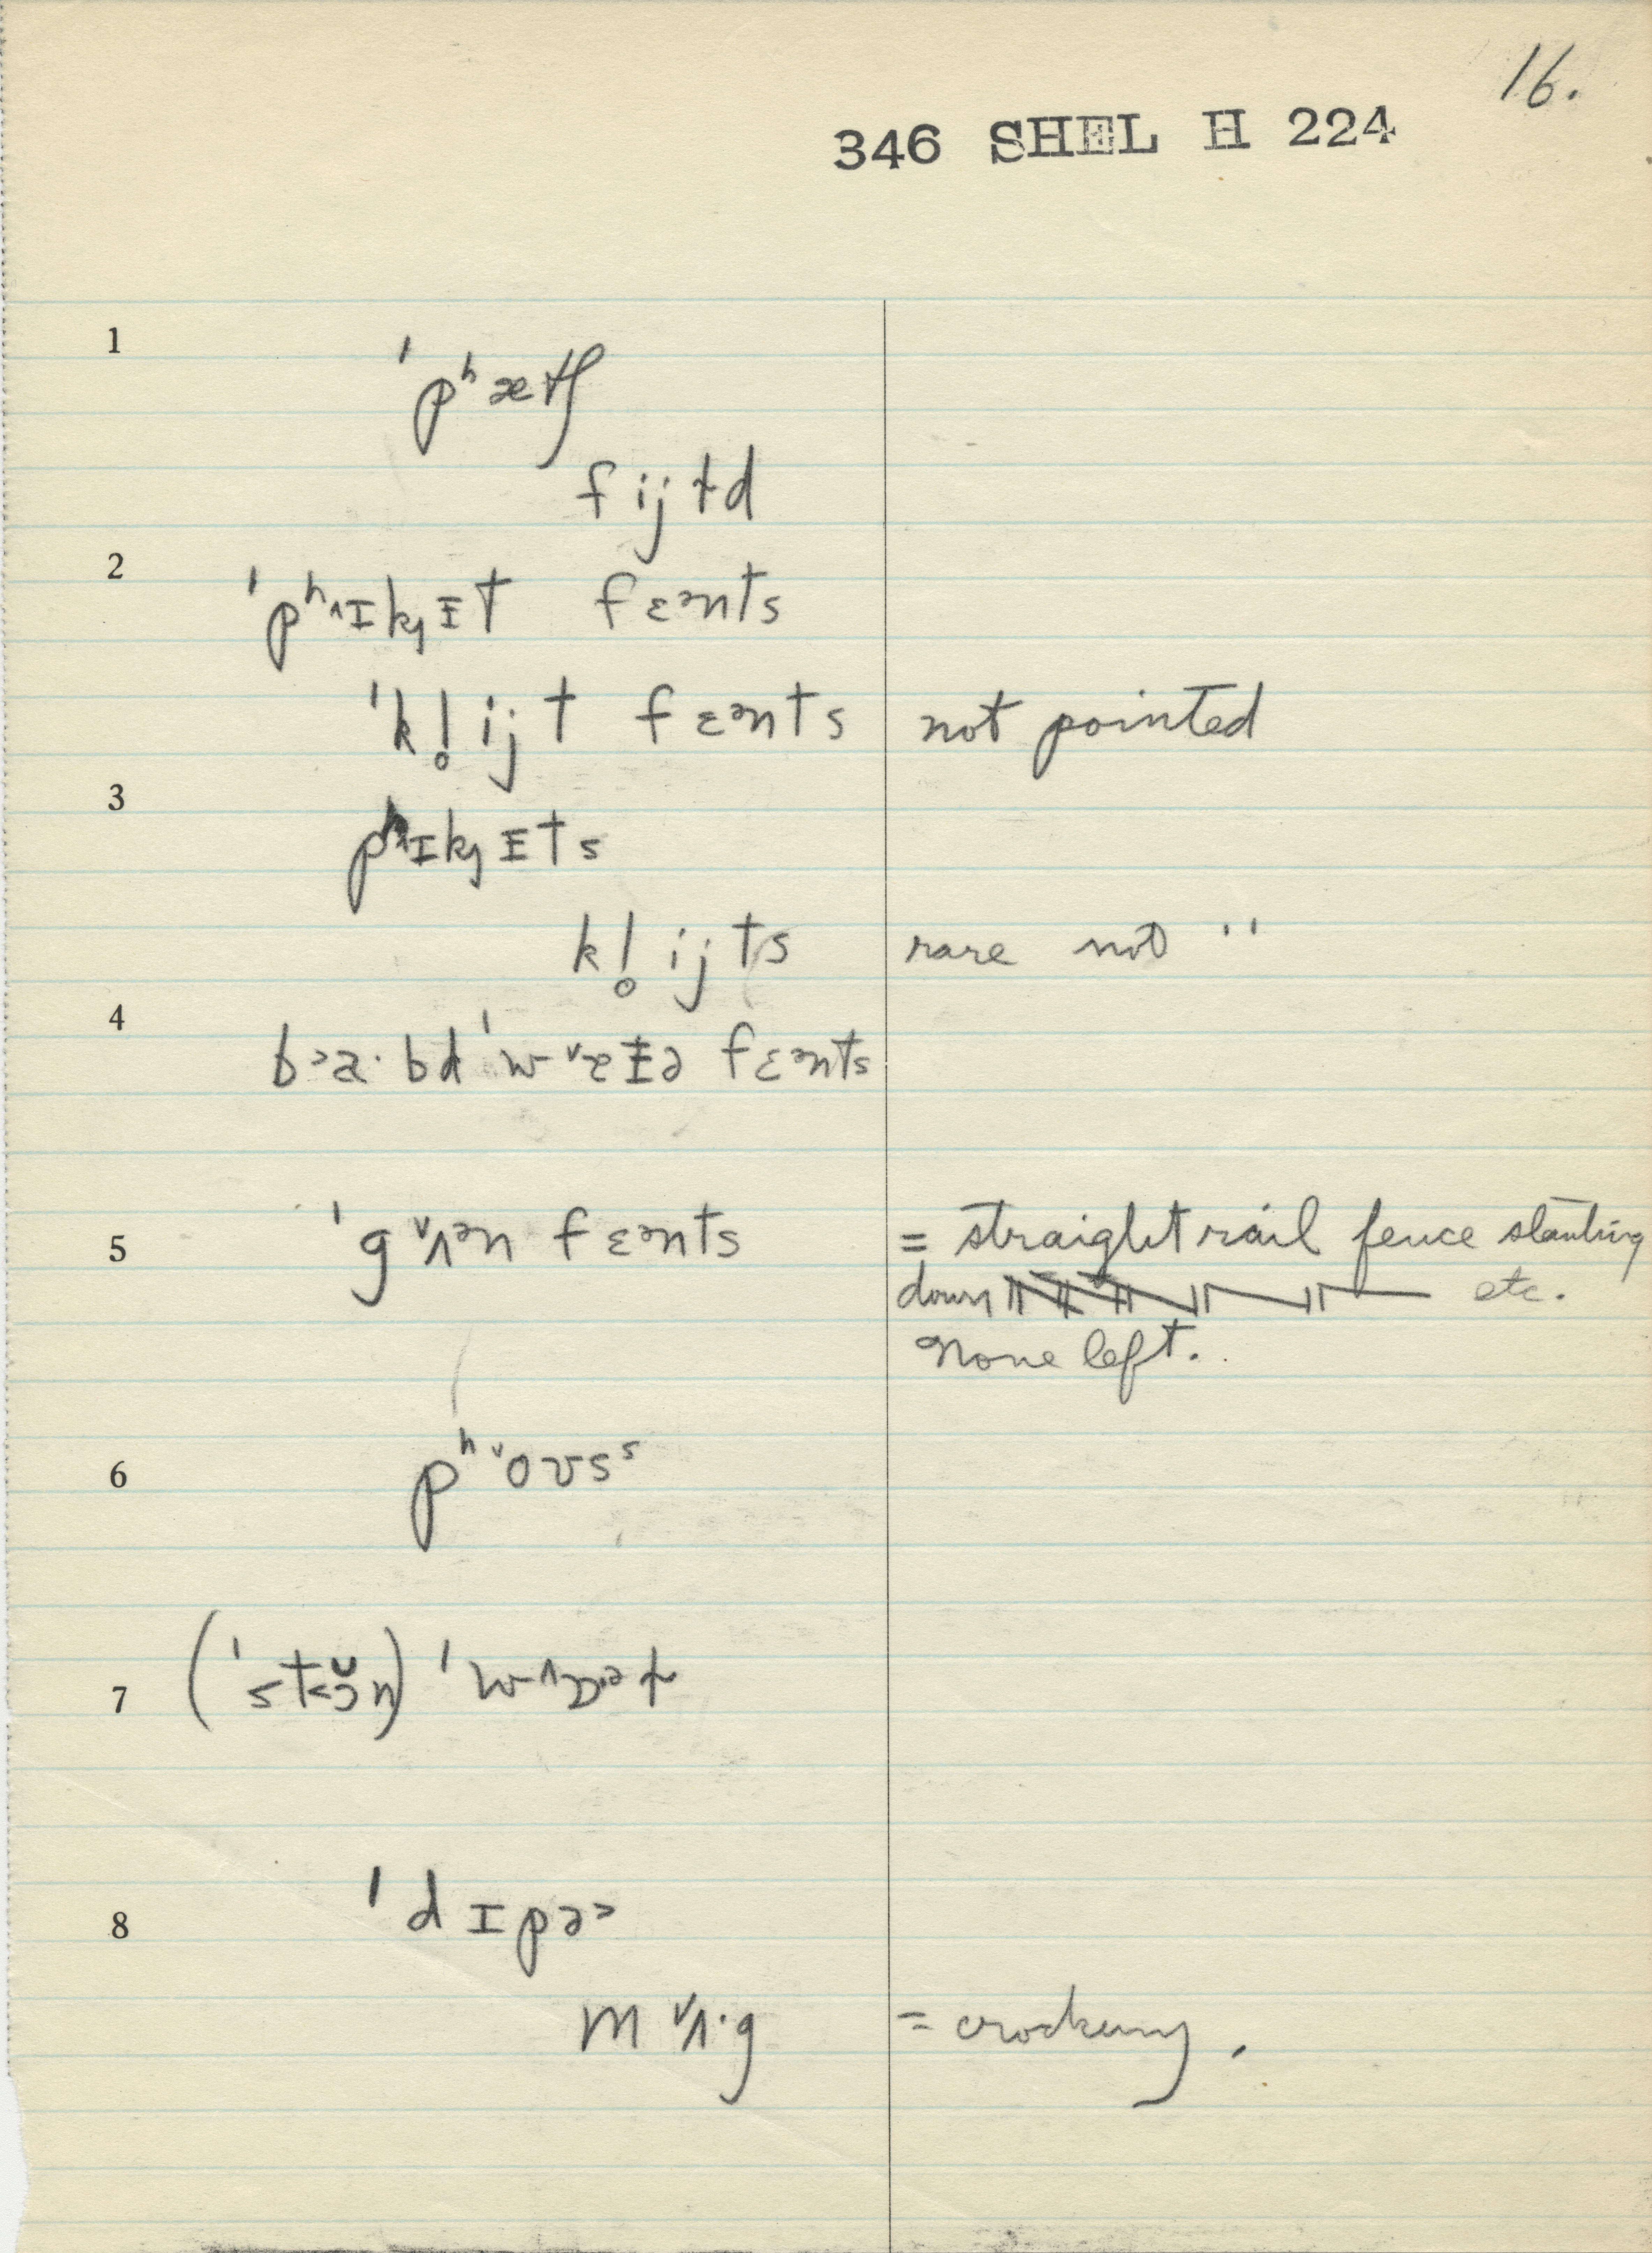 16.
346 SHEL H 224
1
ˈpʰætʃ
fijɫd
2
ˈpʰ˄ɪkɟɪt fɛᵊnts
ˈkl̥ijt fɛᵊnts not pointed
3
pʰ˄ɪkɟɪts
kl̥ijts rare not "
4
b˃a·bd ˈw˅æɪɚ fɛᵊnts
5 ˈg˅ʌᵊn fɛᵊnts = straight rail fence slanting
down etc.
None left.
6 pʰ˅oʊsˢ
7 (ˈst˂ɔ̆n) ˈw˄ɒᵊɫ
8 ˈdɪpə˃
m˅ʌ·g = crockery.